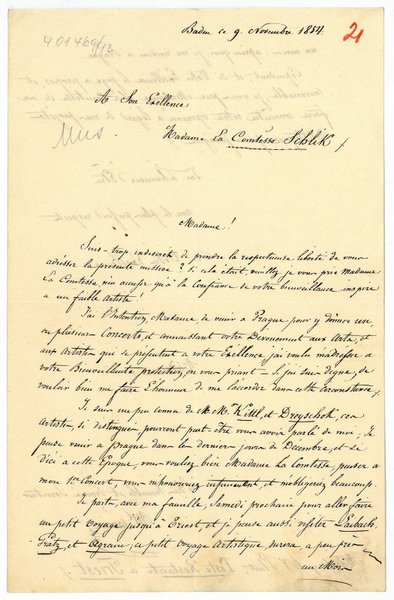 Baden ce 9 Novembre 1854.
21
401469/12
Mus.
A Son Exellence
Madame La Comtesse Schlik
Madame!
Suis-trop indiscret de prendre la respectueuse liberté de vous
adresser la présente missive? Si cela était, veuillez je vous prie Madame
La Comtesse, n'en accuser qu'à la confiance de votre bienveillance inspire
a un faible Artiste!
J'ai l'intention, Madame de venir à Prague pour y donner un,
ou plusieurs Concerts, et connaissant votre Devouement aux Arts, et
aux Artistes qui se présentent a votre Exellence, j'ai voulu m'adresser a
votre Bienveillante protection, en vous priant - si j'en suis digne, de
vouloir bien me faire l'honneur de me l'accorder dans cette circonstance,
Je suis un peu connu de M.M. Kittl, et Dreyschok, ces
Artistes, si distingués pourront peut être vous avoir parlé de moi, Je
pense venir a Prague dans les derniers jours de Decembre, et si
d'ici a cette Epoque, vous vouliez bien Madame La Comtesse, penser a
mon 1er Concert, vous m'honoreriez infiniment, et m'obligerez beaucoup.
Je pars, avec ma famille, Samedi prochain pour aller faire
un petit voyage jusqu'à Triest, et je pense aussi visiter Laibach,
Gratz, et Agram, ce petit voyage Artistique, durera a peu près
un Mois